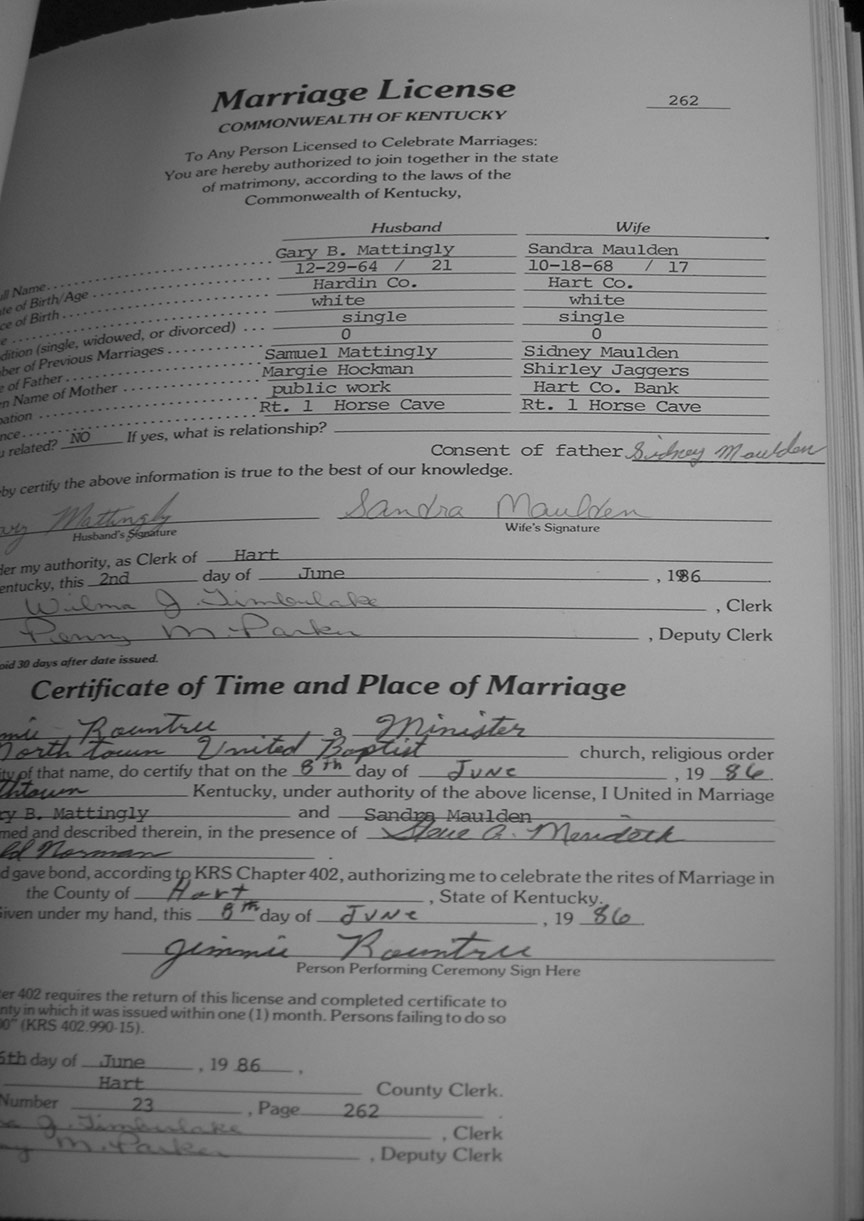 Marriage License
262
COMMONWEALTH OF KENTUCKY
To Any Person Licensed to Celebrate Marriages:
You are hereby authorized to join together in the state
of matrimony, according to the laws of the
Commonwealth of Kentucky,
Husband Wife
ll Name Gary B. Mattingly Sandra Maulden
te of Birth/Age 12-29-64 / 21 10-18-68 / 17
ce of Birth Hardin Co. Hart Co.
e white white
dition (single, widowed, or divorced) single single
ber of Previous Marriages 0 0
e of Father Samuel Mattingly Sidney Maulden
n Name of Mother Margie Hockman Shirley Jaggers
pation public work Hart Co. Bank
nce Rt. 1 Horse Cave Rt. 1 Horse Cave
u related? NO If yes, what is relationship?
Consent of father Sidney Maulden
by certify the above information is true to the best of our knowledge.
ary Mattingly Sandra Maulden
Husband's Signature Wife's Signature
der my authority, as Clerk of Hart
entucky, this 2nd day of June , 1986
Wilma J. Timberlake , Clerk
Penny M. Parker , Deputy Clerk
oid 30 days after date issued.
Certificate of Time and Place of Marriage
mie Rountree a Minister
North town United Baptist church, religious order
ity of that name, do certify that on the 8th day of JUNE , 19 86
thtown Kentucky, under authority of the above license, I United in Marriage
ry B. Mattingly and Sandra Maulden
med and described therein, in the presence of Steve A. Merideth
ld Norman .
d gave bond, according to KRS Chapter 402, authorizing me to celebrate the rites of Marriage in
the County of Hart , State of Kentucky.
Given under my hand, this 8th day of JUNE , 19 86
Jimmie Rountree
Person Performing Ceremony Sign Here
er 402 requires the return of this license and completed certificate to
nty in which it was issued within one (1) month. Persons failing to do so
00" (KRS 402.990-15).
6th day of June , 19 86 ,
Hart County Clerk.
Number 23 , Page 262 .
a J. Timberlake , Clerk
ny M. Parker , Deputy Clerk